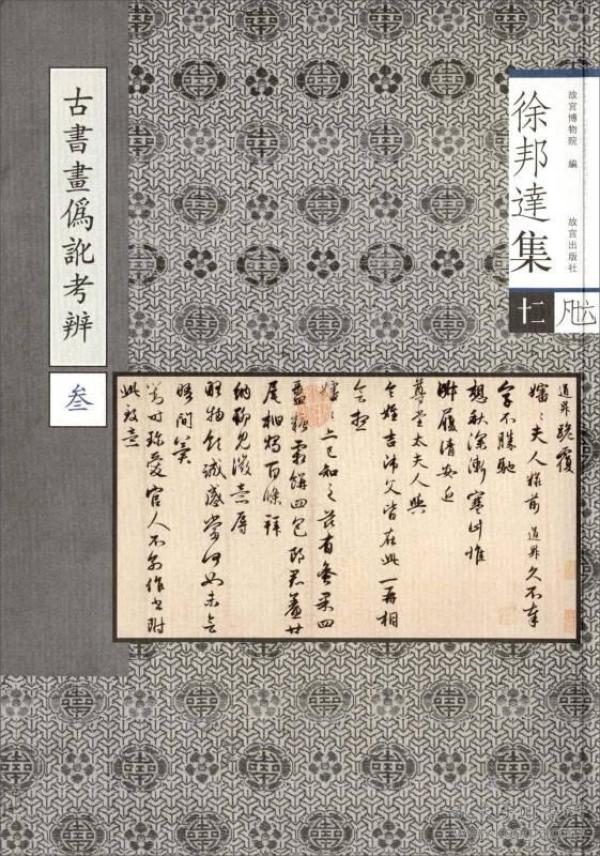 徐邦達集
十二
故宮博物院 編
故宮出版社
古書畫僞訛考辨
叁
道昇跪覆
嬸〻夫人粧前道昇久不奉
字不勝馳
想秋深漸寒計惟
淑履清安近
尊堂太夫人與
令姪吉師父皆在此一再相
會想
嬸〻上已知之茲有蜜果四
糖霜餅四包郎君鯗廿
尾柏燭百條拜
納聊見微意辱
物領誠感當何如未會
晤間冀
對時珍愛官人不別作書附
此致意